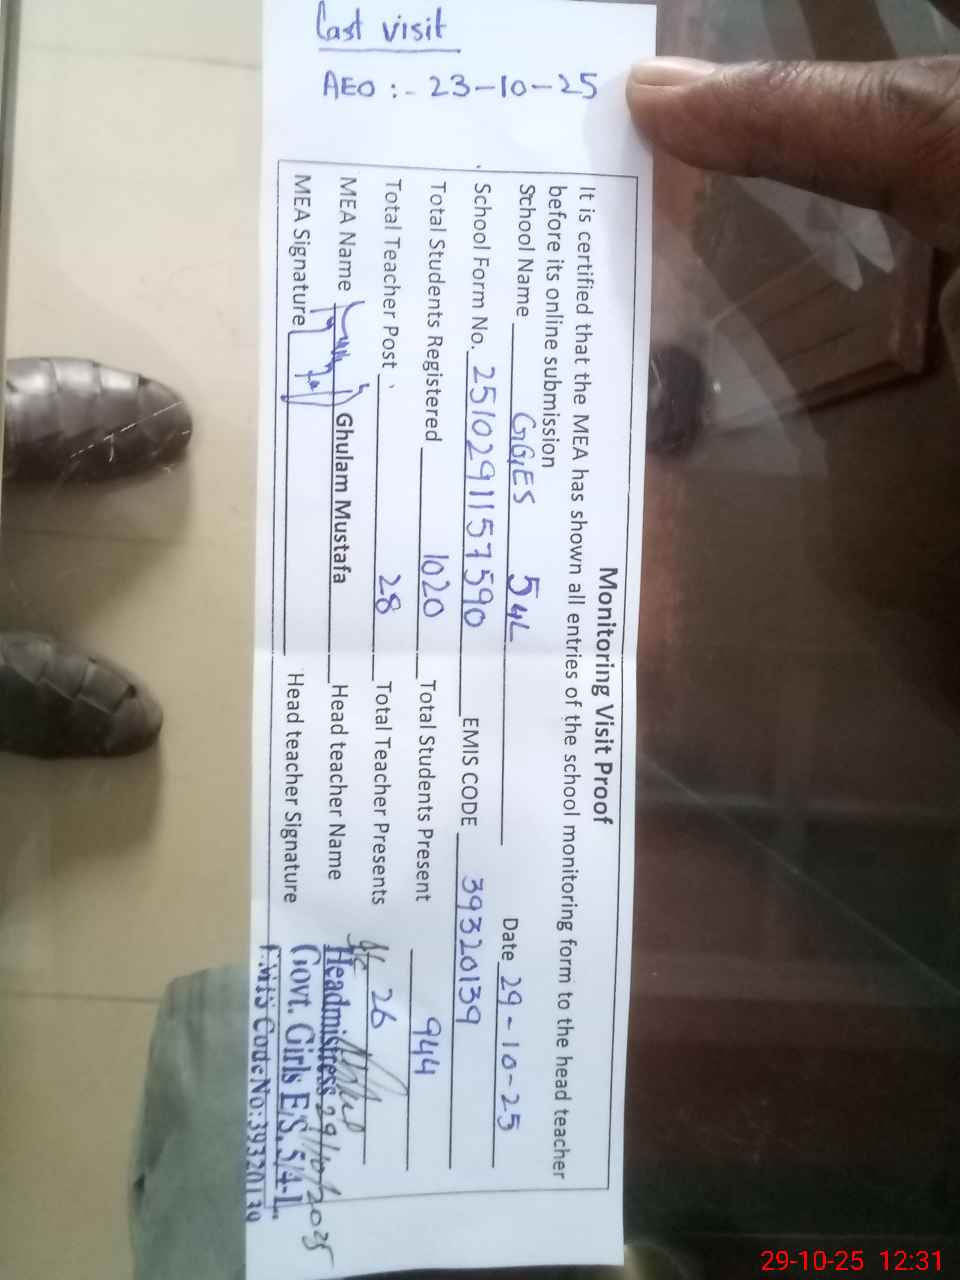 Last visit
AEO :- 23-10-25
Monitoring Visit Proof
It is certified that the MEA has shown all entries of the school monitoring form to the head teacher
before its online submission
School Name GGES 54L Date 29-10-25
School Form No. 251029115 7590 EMIS CODE 39320139
Total Students Registered 1020 Total Students Present 944
Total Teacher Post 28 Total Teacher Presents 26
MEA Name Ghulam Mustafa Head teacher Name
MEA Signature Head teacher Signature
Headmistress 29/10/2025
Govt. Girls E/S. 5/4-L
EMIS Code No:39320139
29-10-25 12:31